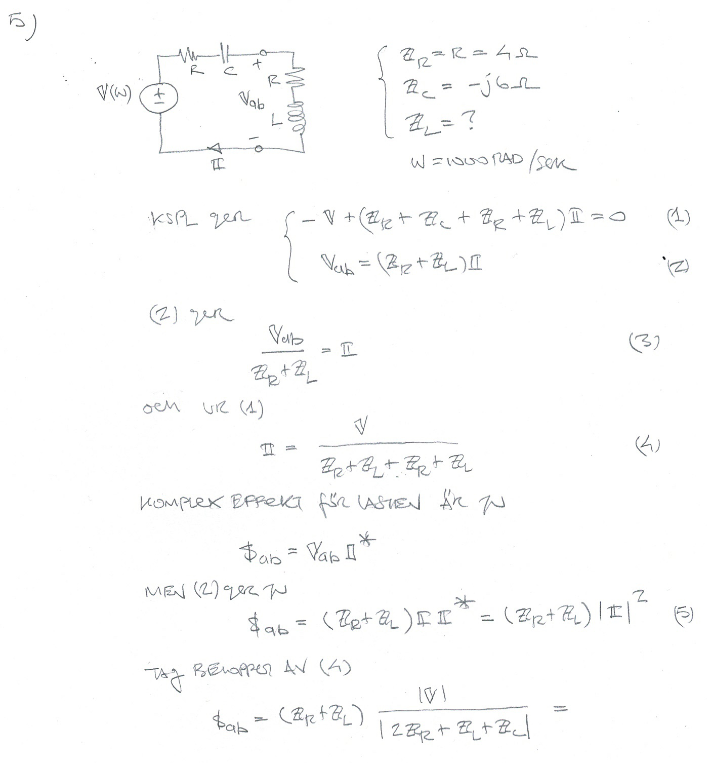 5)
R C + R
V(ω) ± Vab L
− I
Z_R = R = 4Ω
Z_C = -j6Ω
Z_L = ?
W = 1000 RAD/SEK
KSPL ger { -V + (Z_R + Z_C + Z_R + Z_L) I = 0 (1)
Vab = (Z_R + Z_L) I (2)
(2) ger
Vab / (Z_R + Z_L) = I (3)
och UR (1)
I = V / (Z_R + Z_L + Z_R + Z_L) (4)
KOMPLEX EFFEKT för LASTEN ÄR
$ab = Vab I*
MEN (2) ger
$ab = (Z_R + Z_L) I I* = (Z_R + Z_L) |I|² (5)
TAG BELOPPET AV (4)
$ab = (Z_R + Z_L) |V| / |2Z_R + Z_L + Z_C| =